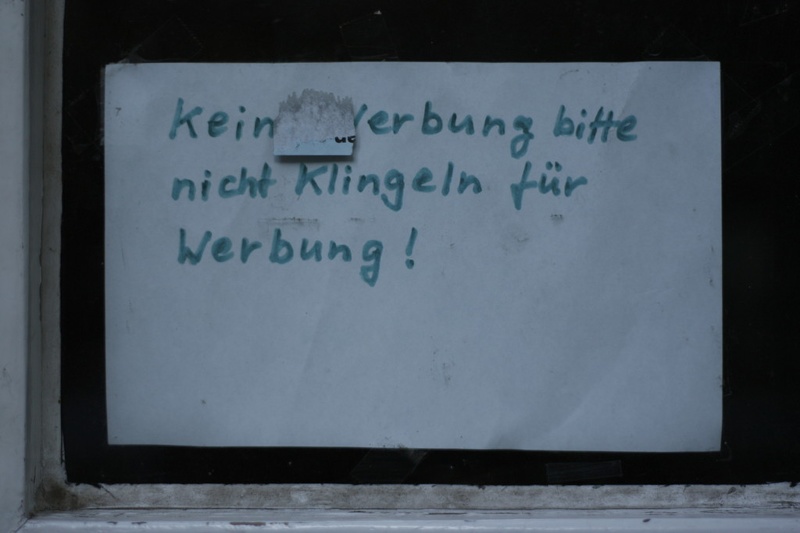 Kein Werbung bitte
nicht Klingeln für
Werbung!